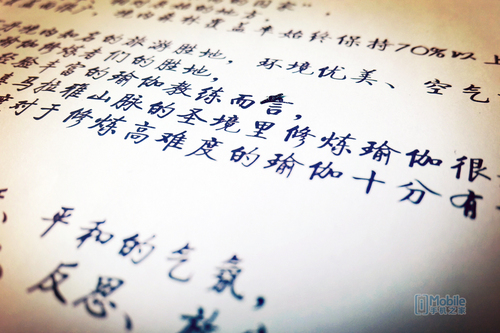 国家"。
森林覆盖率始终保持70%以上
知名的旅游胜地，环境优美、空气
瑜伽修炼者们的胜地，
经验丰富的瑜伽教练而言，
马拉雅山脉的圣境里修炼瑜伽很
对于修炼高难度的瑜伽十分有
平和的气氛，
反思、
Mobile
手机之家